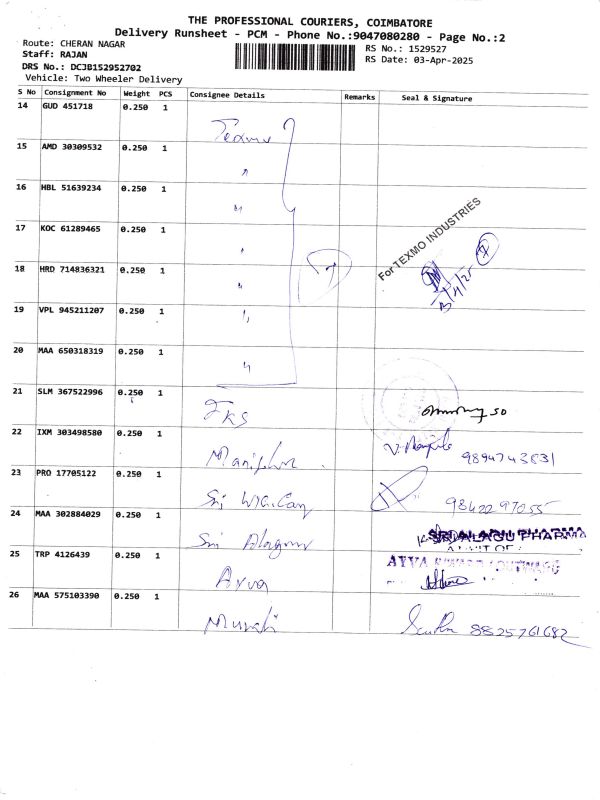 THE PROFESSIONAL COURIERS, COIMBATORE
Delivery Runsheet - PCM - Phone No.:9047080280 - Page No.:2
Route: CHERAN NAGAR
RS No.: 1529527
Staff: RAJAN
RS Date: 03-Apr-2025
DRS No.: DCJB152952702
Vehicle: Two Wheeler Delivery
S No Consignment No Weight PCS Consignee Details Remarks Seal & Signature
14 GUD 451718 0.250 1
Texmo
15 AMD 30309532 0.250 1
"
16 HBL 51639234 0.250 1
"
17 KOC 61289465 0.250 1
"
For TEXMO INDUSTRIES
18 HRD 714836321 0.250 1
" 7
3/4/25
19 VPL 945211207 0.250 1
"
20 MAA 650318319 0.250 1
"
21 SLM 367522996 0.250 1
JKS
22 IXM 303498580 0.250 1
9894743831
23 PRO 17705122 0.250 1
Sri 9842297055
24 MAA 302884029 0.250 1
Sri SRI ALAGU PHARMA
A UNIT OF
25 TRP 4126439 0.250 1
Ayva AYVA
26 MAA 575103390 0.250 1
Murali 8825761682